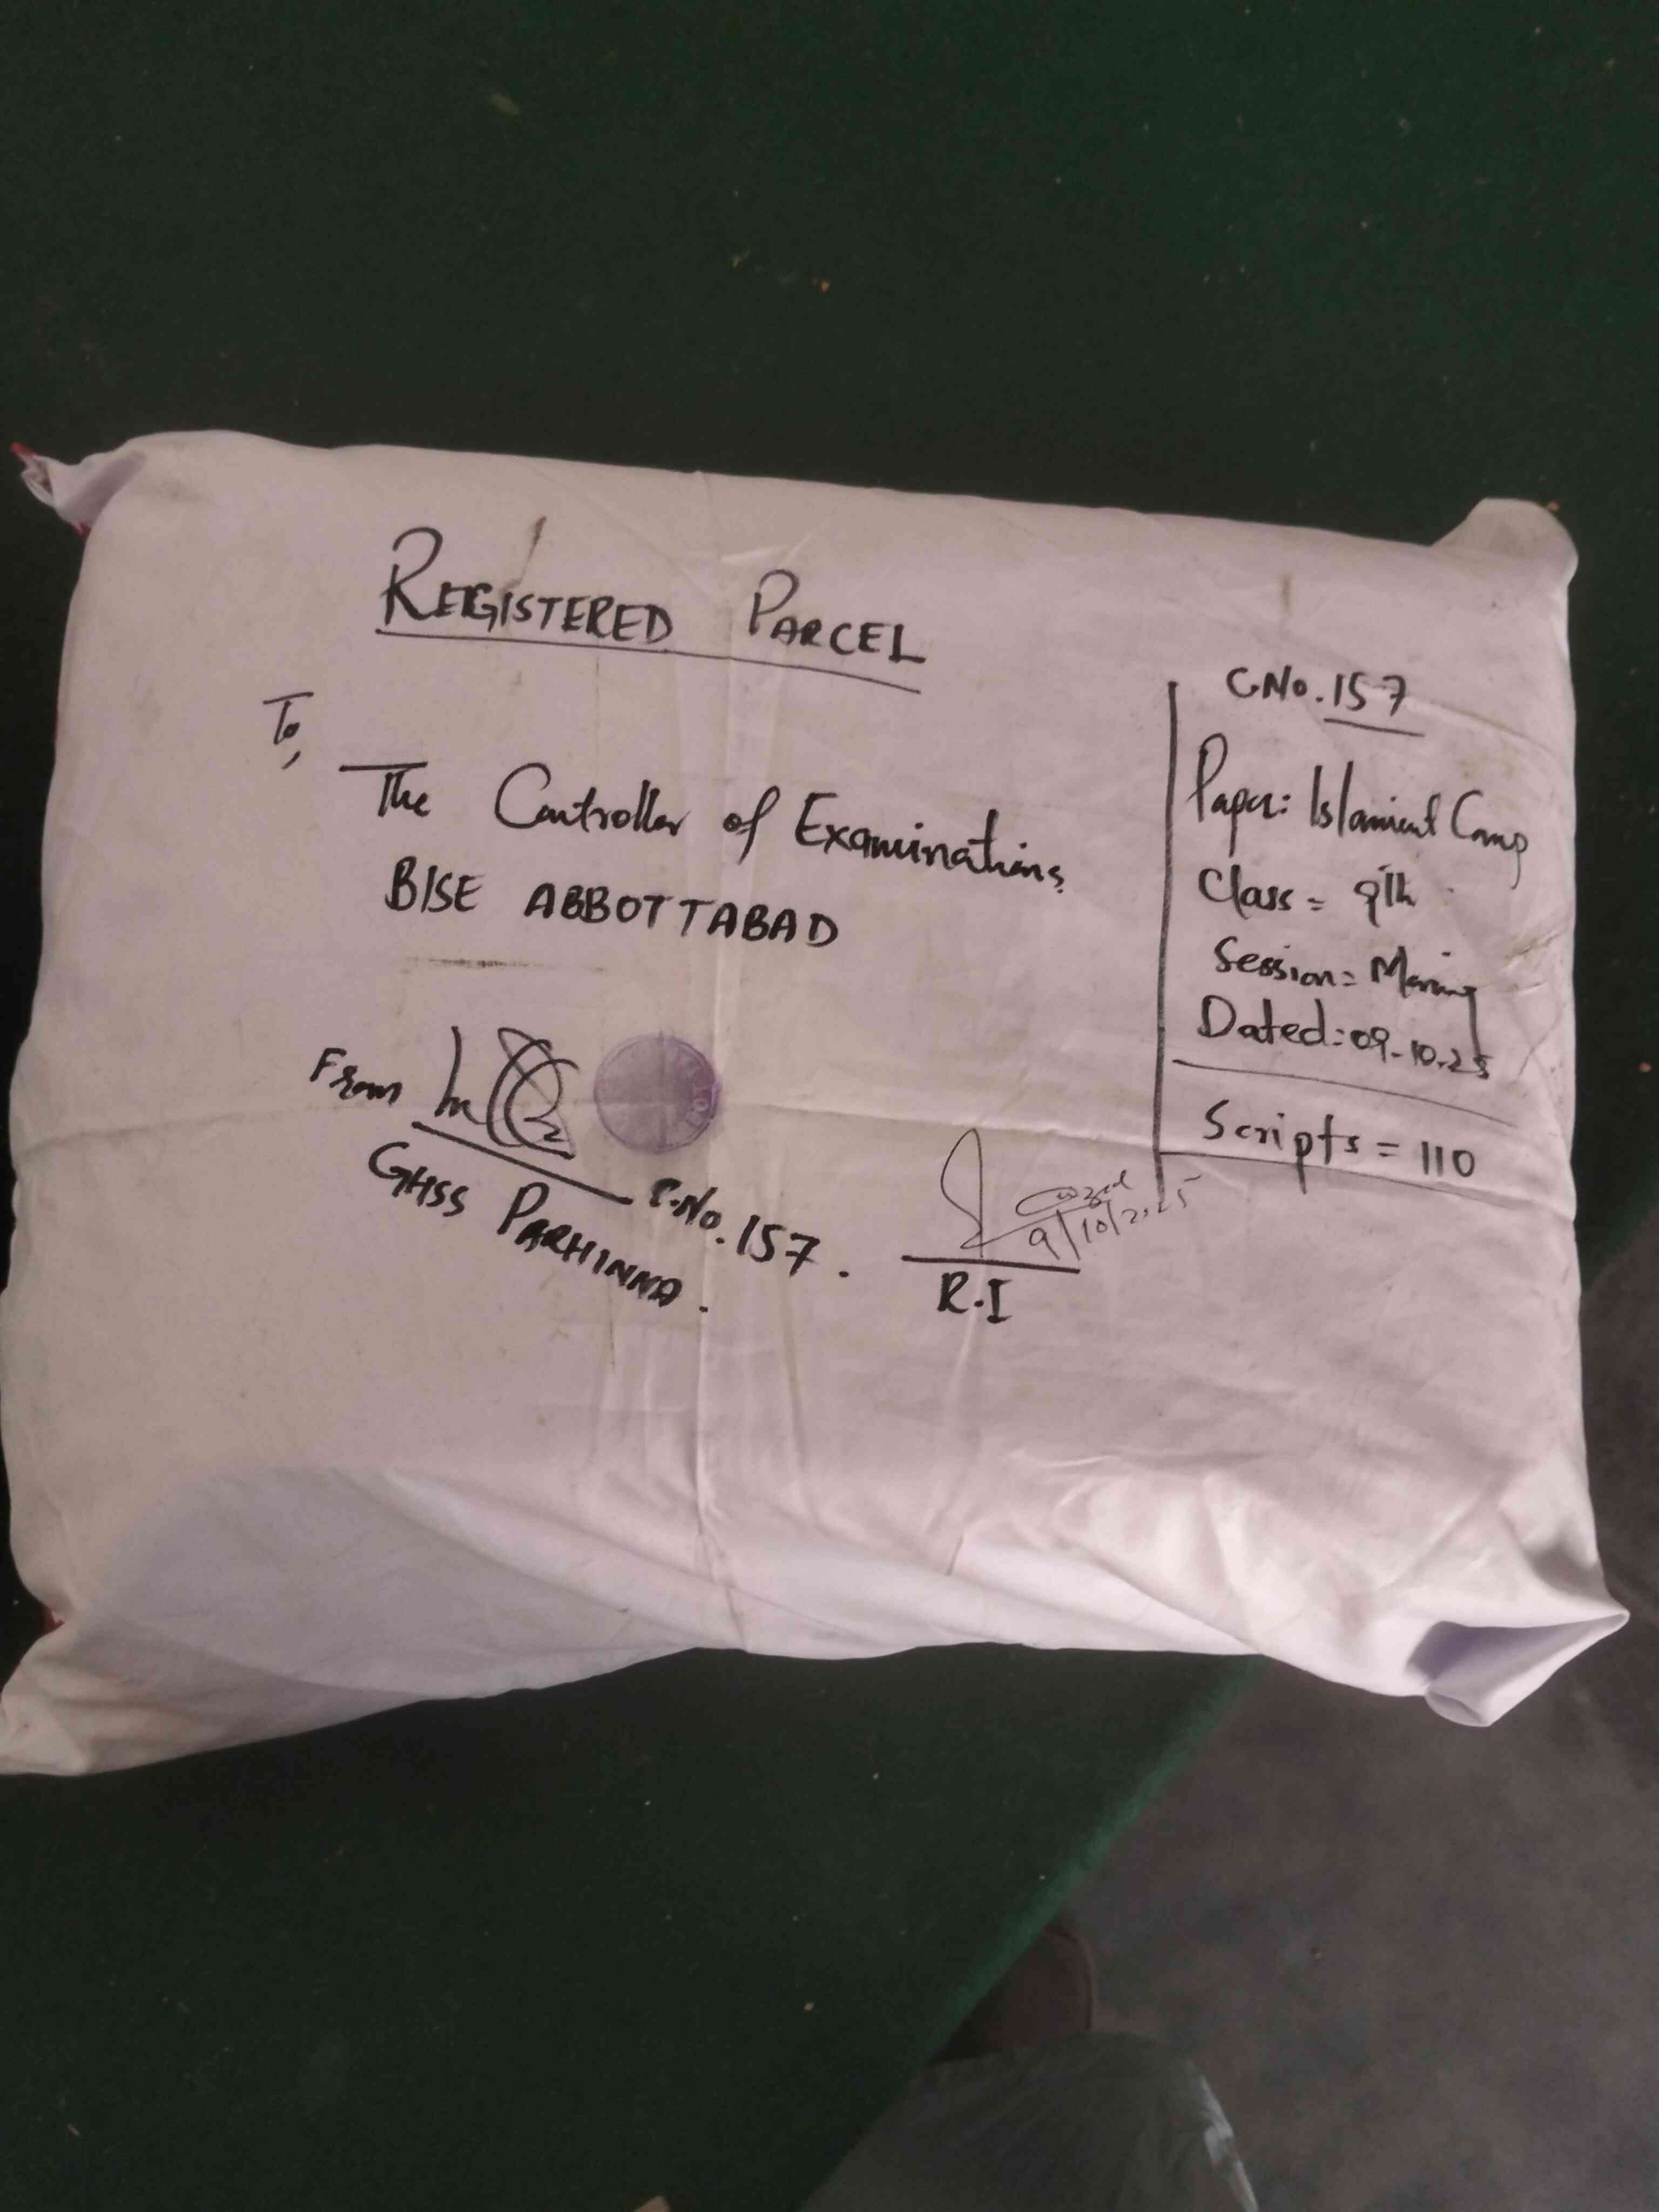 REGISTERED PARCEL
To,
The Controller of Examinations,
BISE ABBOTTABAD
From
GHSS PARHINNA.
C.No. 157.
9/10/2025
R.I
C.No. 157
Paper: Islamiat Comp
Class = 9th
Session = Morning
Dated: 09-10-25
Scripts = 110